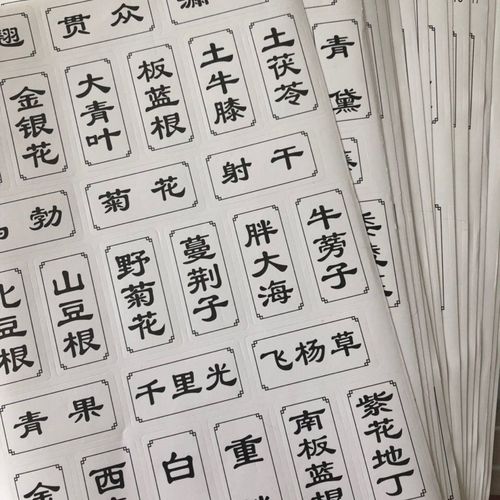 翘
贯众
金银花
大青叶
板蓝根
土牛膝
土茯苓
青黛
勃
菊花
射干
豆根
山豆根
野菊花
蔓荆子
胖大海
牛蒡子
青果
千里光
飞杨草
金
西
白
重
南板蓝根
紫花地丁